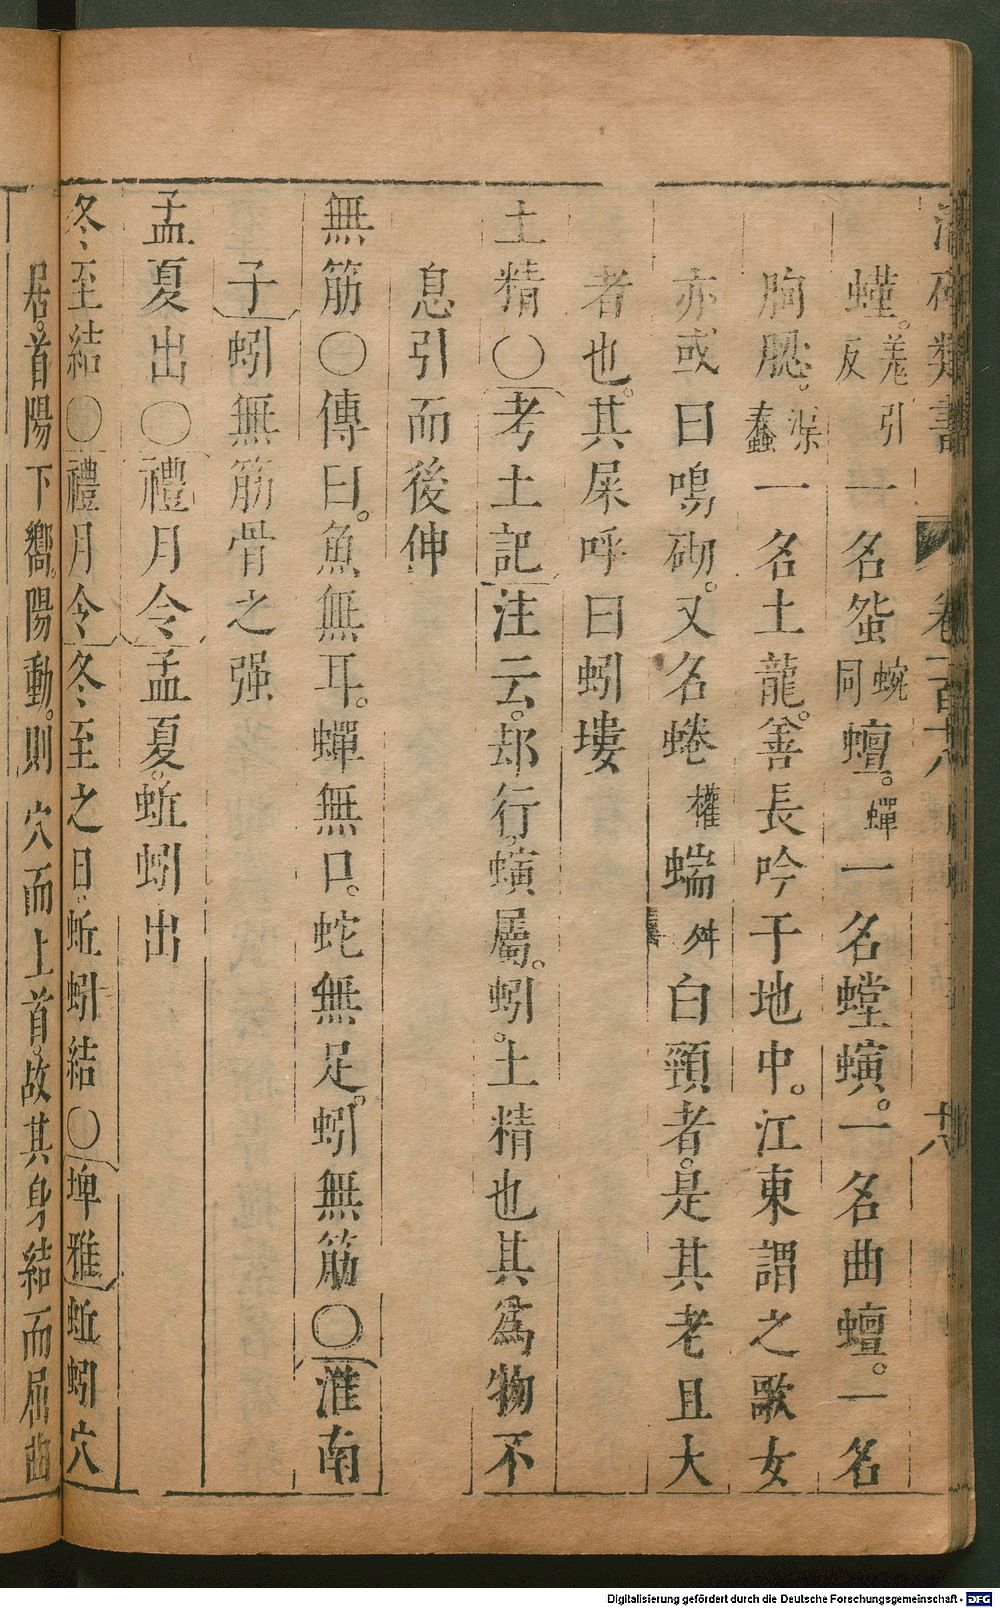 卷一百六
螼。羌引反一名蜸蜿同蟺。蟬一名螳蟥。一名曲蟺。一名
朐䏰。蠢一名土龍。善長吟于地中。江東謂之歌女
亦或曰鳴砌。又名蜷權蝺舛白頸者。是其老且大
者也。其屎呼曰蚓塿
土精〇考土記注云。却行。蟥屬。蚓。土精也其為物不
息引而後伸
無筋〇傳曰。魚無耳。蟬無口。蛇無足。蚓無筋〇淮南
子蚓無筋骨之强
孟夏出〇禮月令孟夏。蚯蚓出
冬至結〇禮月令冬至之日。蚯蚓結〇埤雅蚯蚓穴
居。首陽下嚮。陽動。則穴而上首。故其身結而屈曲
Digitalisierung gefördert durch die Deutsche Forschungsgemeinschaft - DFG